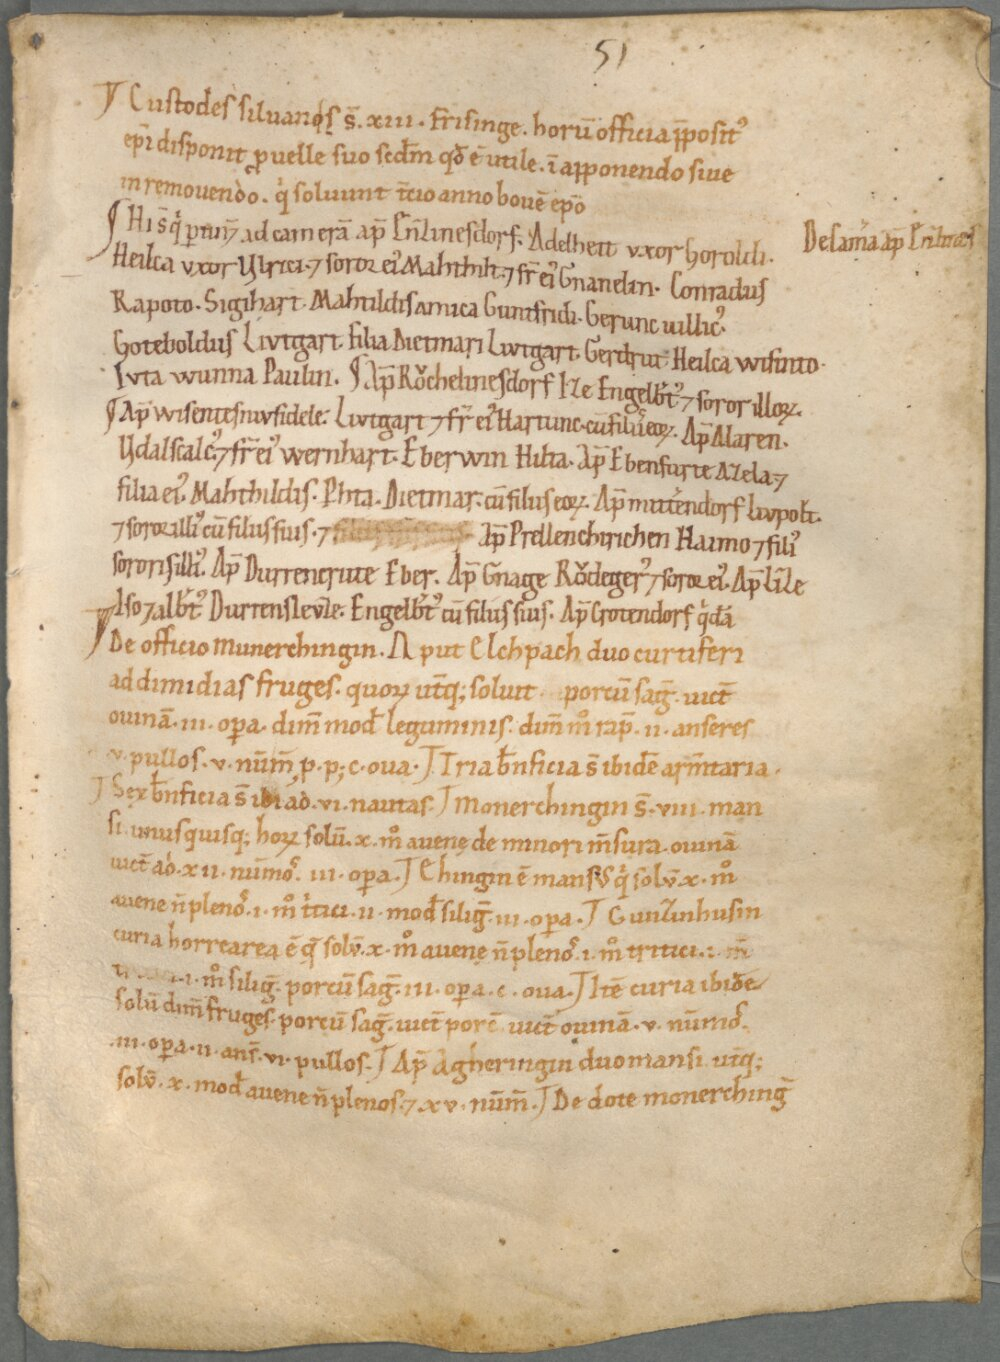 51
Custodes siluanos s̄. xiii. frisinge. horū officia p̄posit᾿
ep̄i disponit p uelle suo scdm̄ qd ē utile. ī apponendo siue
in remouendo. q̇ soluunt t̄cio anno bouē ep̄o
ad camerā ap̄ Adelheit vxor horoldi.
De ap̄
Heilca vxor Vlrici. ⁊ soror ei᾿ Mahthilt. ⁊ fr̄ ei᾿ Gnanelin. Conradus
Rapoto. Sigihart. Mahtildis amica Guntfridi. Gerunc uillic᾿.
Goteboldus Livtgart. filia Dietmari Livtgart. Gerdrut. Heilca wisinto.
Ivta wunna Paulin. ap̄ Rǒchelinesdorf Engelb̄t᾿ ⁊ soror illoꝝ.
Ap̄ Livtgart ⁊ fr̄ ei᾿ Hartunc. cū filiis eoꝝ. Ap̄ Alaren.
Vdalscalc᾿. ⁊ fr̄ ei᾿ wernhart. Eberwin Hilta. Ap̄ Ebenfurte Azela. ⁊
filia ei᾿. Mahthildis. Dietmar. cū filiis eoꝝ. Ap̄ mittendorf Livpolt.
⁊ soror illi᾿ cū filiis suis. ⁊ ap̄ Prellenchirichen Haimo ⁊ filii
sororis illi᾿. Ap̄ Durrencrute Eber. Ap̄ Gnage Rǒdeger᾿ ⁊ soror ei᾿. Ap̄
Iso ⁊ alb̄t᾿ Engelb̄t᾿ cū filiis suis. Ap̄ Crotendorf q̇dā
De officio munerchingin. Aput Elchpach duo curtiferi
ad dimidias fruges. quoꝝ utq; soluit porcū sag̅. uict̄
ouinā. iii. opa. dim̄ mod leguminis. dim̄ m̊ rap̄. ii. anseres
v. pullos. v. nūm̄ p. p; c. oua. Tria b̄nficia s̄ ibidē arm̄taria.
Sex b̄nficia s̄ ibi ad. vi. nautas. Monerchingin s̄. viii. man
si. unusquisq; hoꝝ solū. x. m̊ auenę de minori m̄sura. ouinā
uict̄ ad. xii. nūmo᾿. iii. opa. Ehingin ē mansus q̇ solū. x. m̊
auene n̄ pleno᾿. i. m̊ ṫtici. ii. mod silig̅. iii. opa. Gunzinhusin
curia horrearea ē q̄ solū. x. m̊ auenę n̄ pleno᾿. i. m̊ tritici. i. m̊
i. m̊ silig̅. porcū sag̅. iii. opa. c. oua. Itē curia ibidē
solū dim̄ fruges. porcū sag̅. uict̄ porc̄ uict̄ ouinā. v. nūmo᾿.
iii. opa. ii. ans̄. vi. pullos. Ap̄ Agheringin duo mansi. utq;
solū. x. mod auene n̄ plenos. ⁊ xv. nūm̄. De dote monerching̅